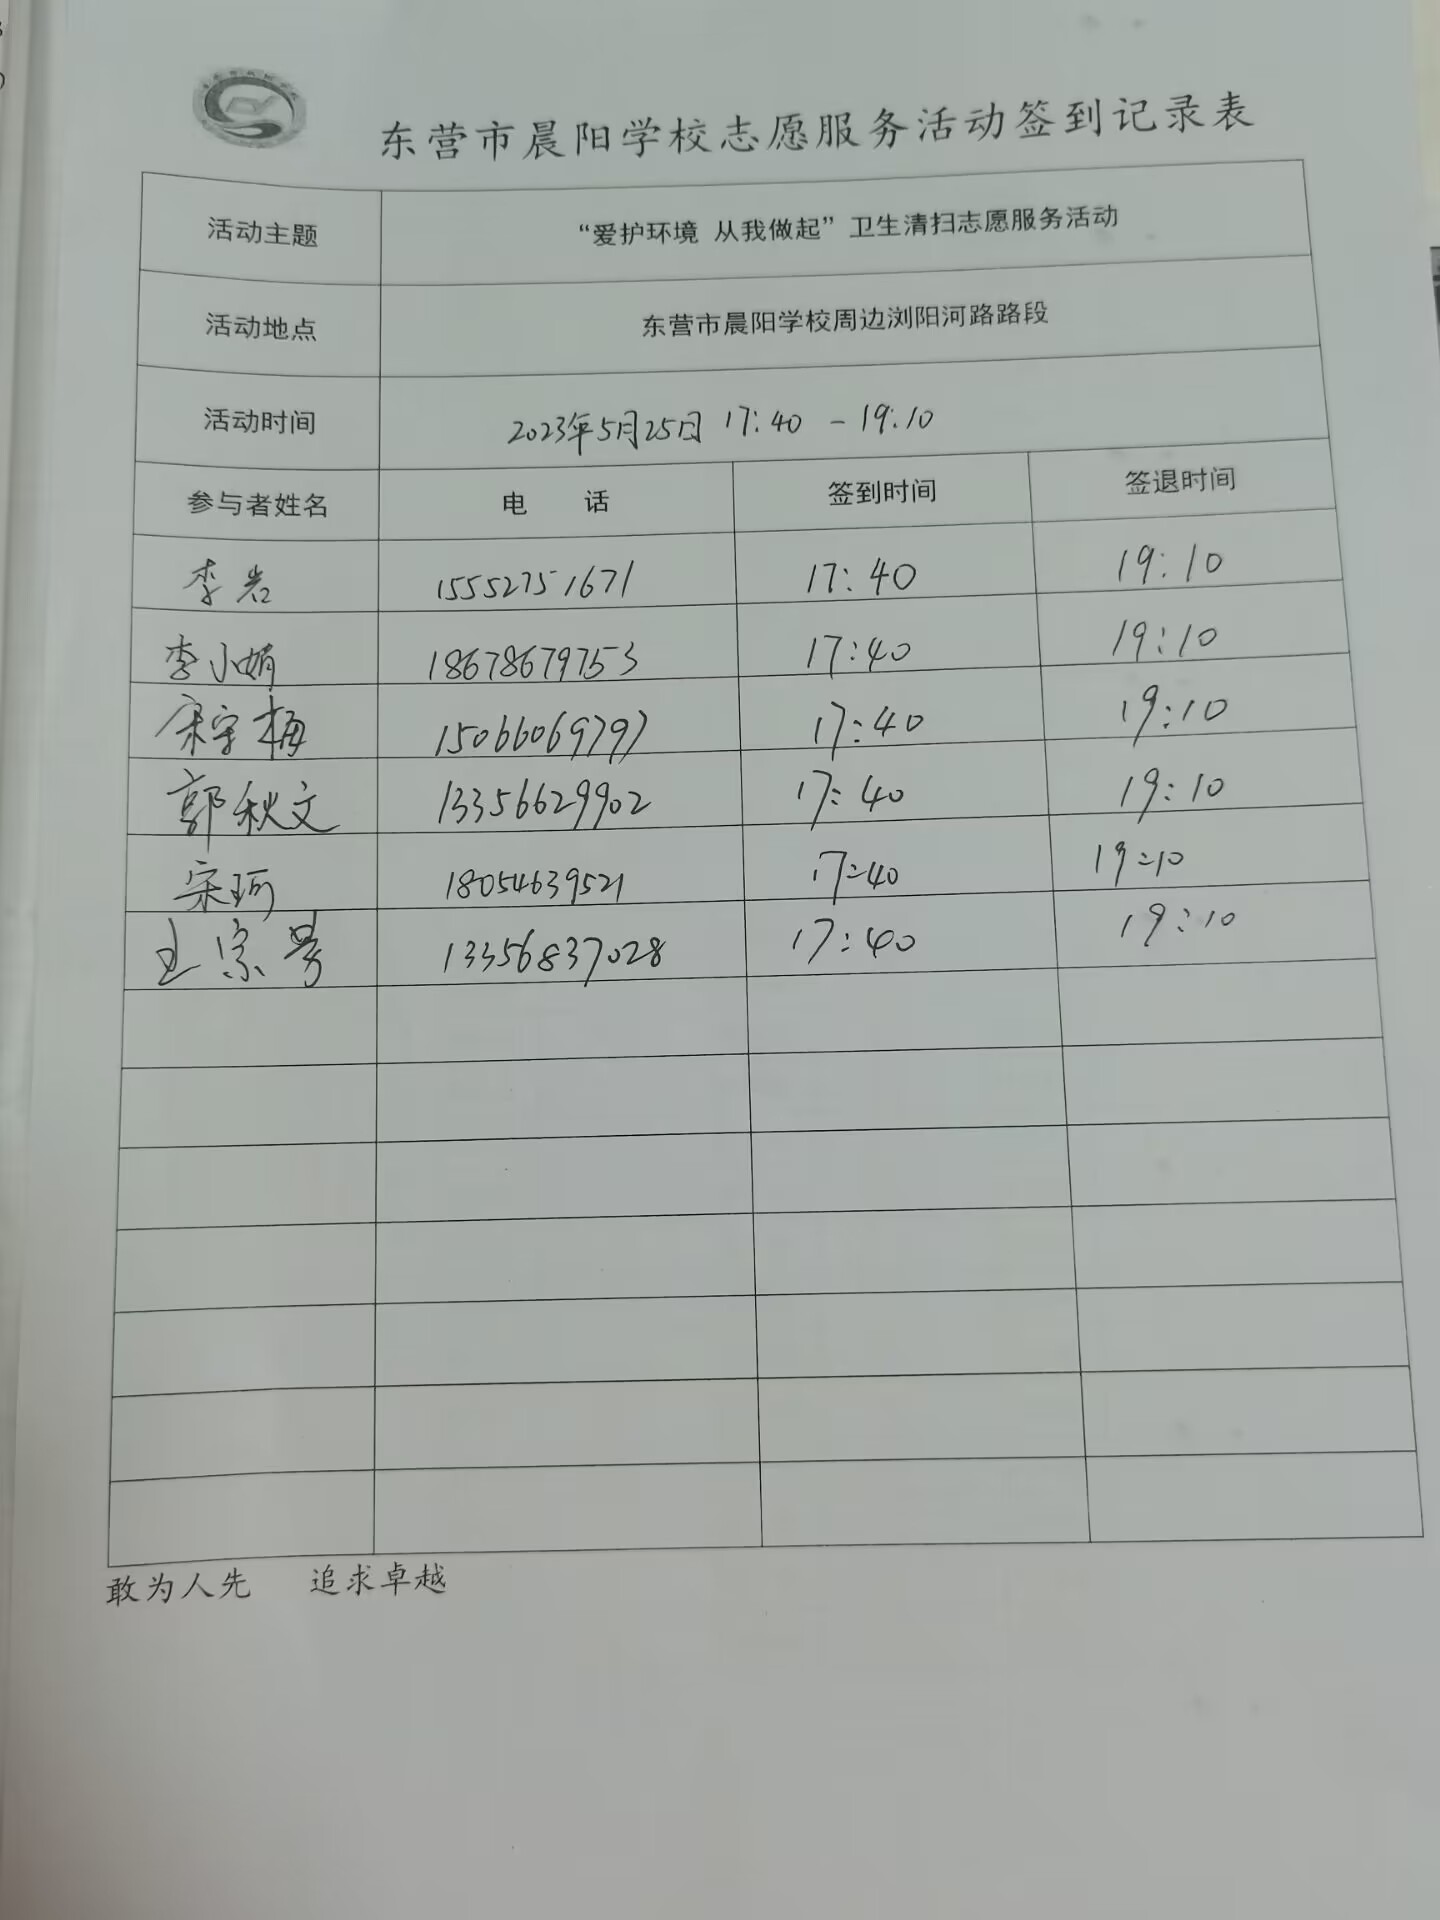 东营市晨阳学校志愿服务活动签到记录表
活动主题 “爱护环境 从我做起”卫生清扫志愿服务活动
活动地点 东营市晨阳学校周边浏阳河路路段
活动时间 2023年5月25日 17:40 - 19:10
参与者姓名 电 话 签到时间 签退时间
李岩 15552751671 17:40 19:10
李小娟 18678679753 17:40 19:10
宋宇梅 15066069797 17:40 19:10
郭秋文 13356629902 17:40 19:10
宋珂 18054639521 17:40 19:10
王宗 13356837028 17:40 19:10
敢为人先 追求卓越